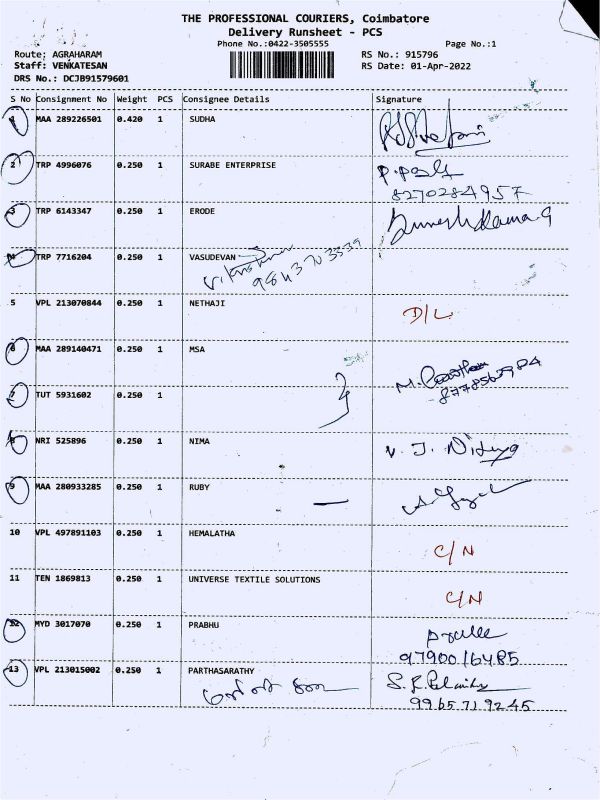 THE PROFESSIONAL COURIERS, Coimbatore
Delivery Runsheet - PCS
Phone No.:0422-3505555 Page No.:1
Route: AGRAHARAM RS No.: 915796
Staff: VENKATESAN RS Date: 01-Apr-2022
DRS No.: DCJB91579601
S No Consignment No Weight PCS Consignee Details Signature
1 MAA 289226501 0.420 1 SUDHA
2 TRP 4996076 0.250 1 SURABE ENTERPRISE
8270284957
3 TRP 6143347 0.250 1 ERODE
4 TRP 7716204 0.250 1 VASUDEVAN
9843703339
5 VPL 213070844 0.250 1 NETHAJI D/L
6 MAA 289140471 0.250 1 MSA
7 TUT 5931602 0.250 1
8 NRI 525896 0.250 1 NIMA
9 MAA 280933285 0.250 1 RUBY
10 VPL 497891103 0.250 1 HEMALATHA C/N
11 TEN 1869813 0.250 1 UNIVERSE TEXTILE SOLUTIONS C/N
12 MYD 3017070 0.250 1 PRABHU
9790016485
13 VPL 213015002 0.250 1 PARTHASARATHY
9965719245